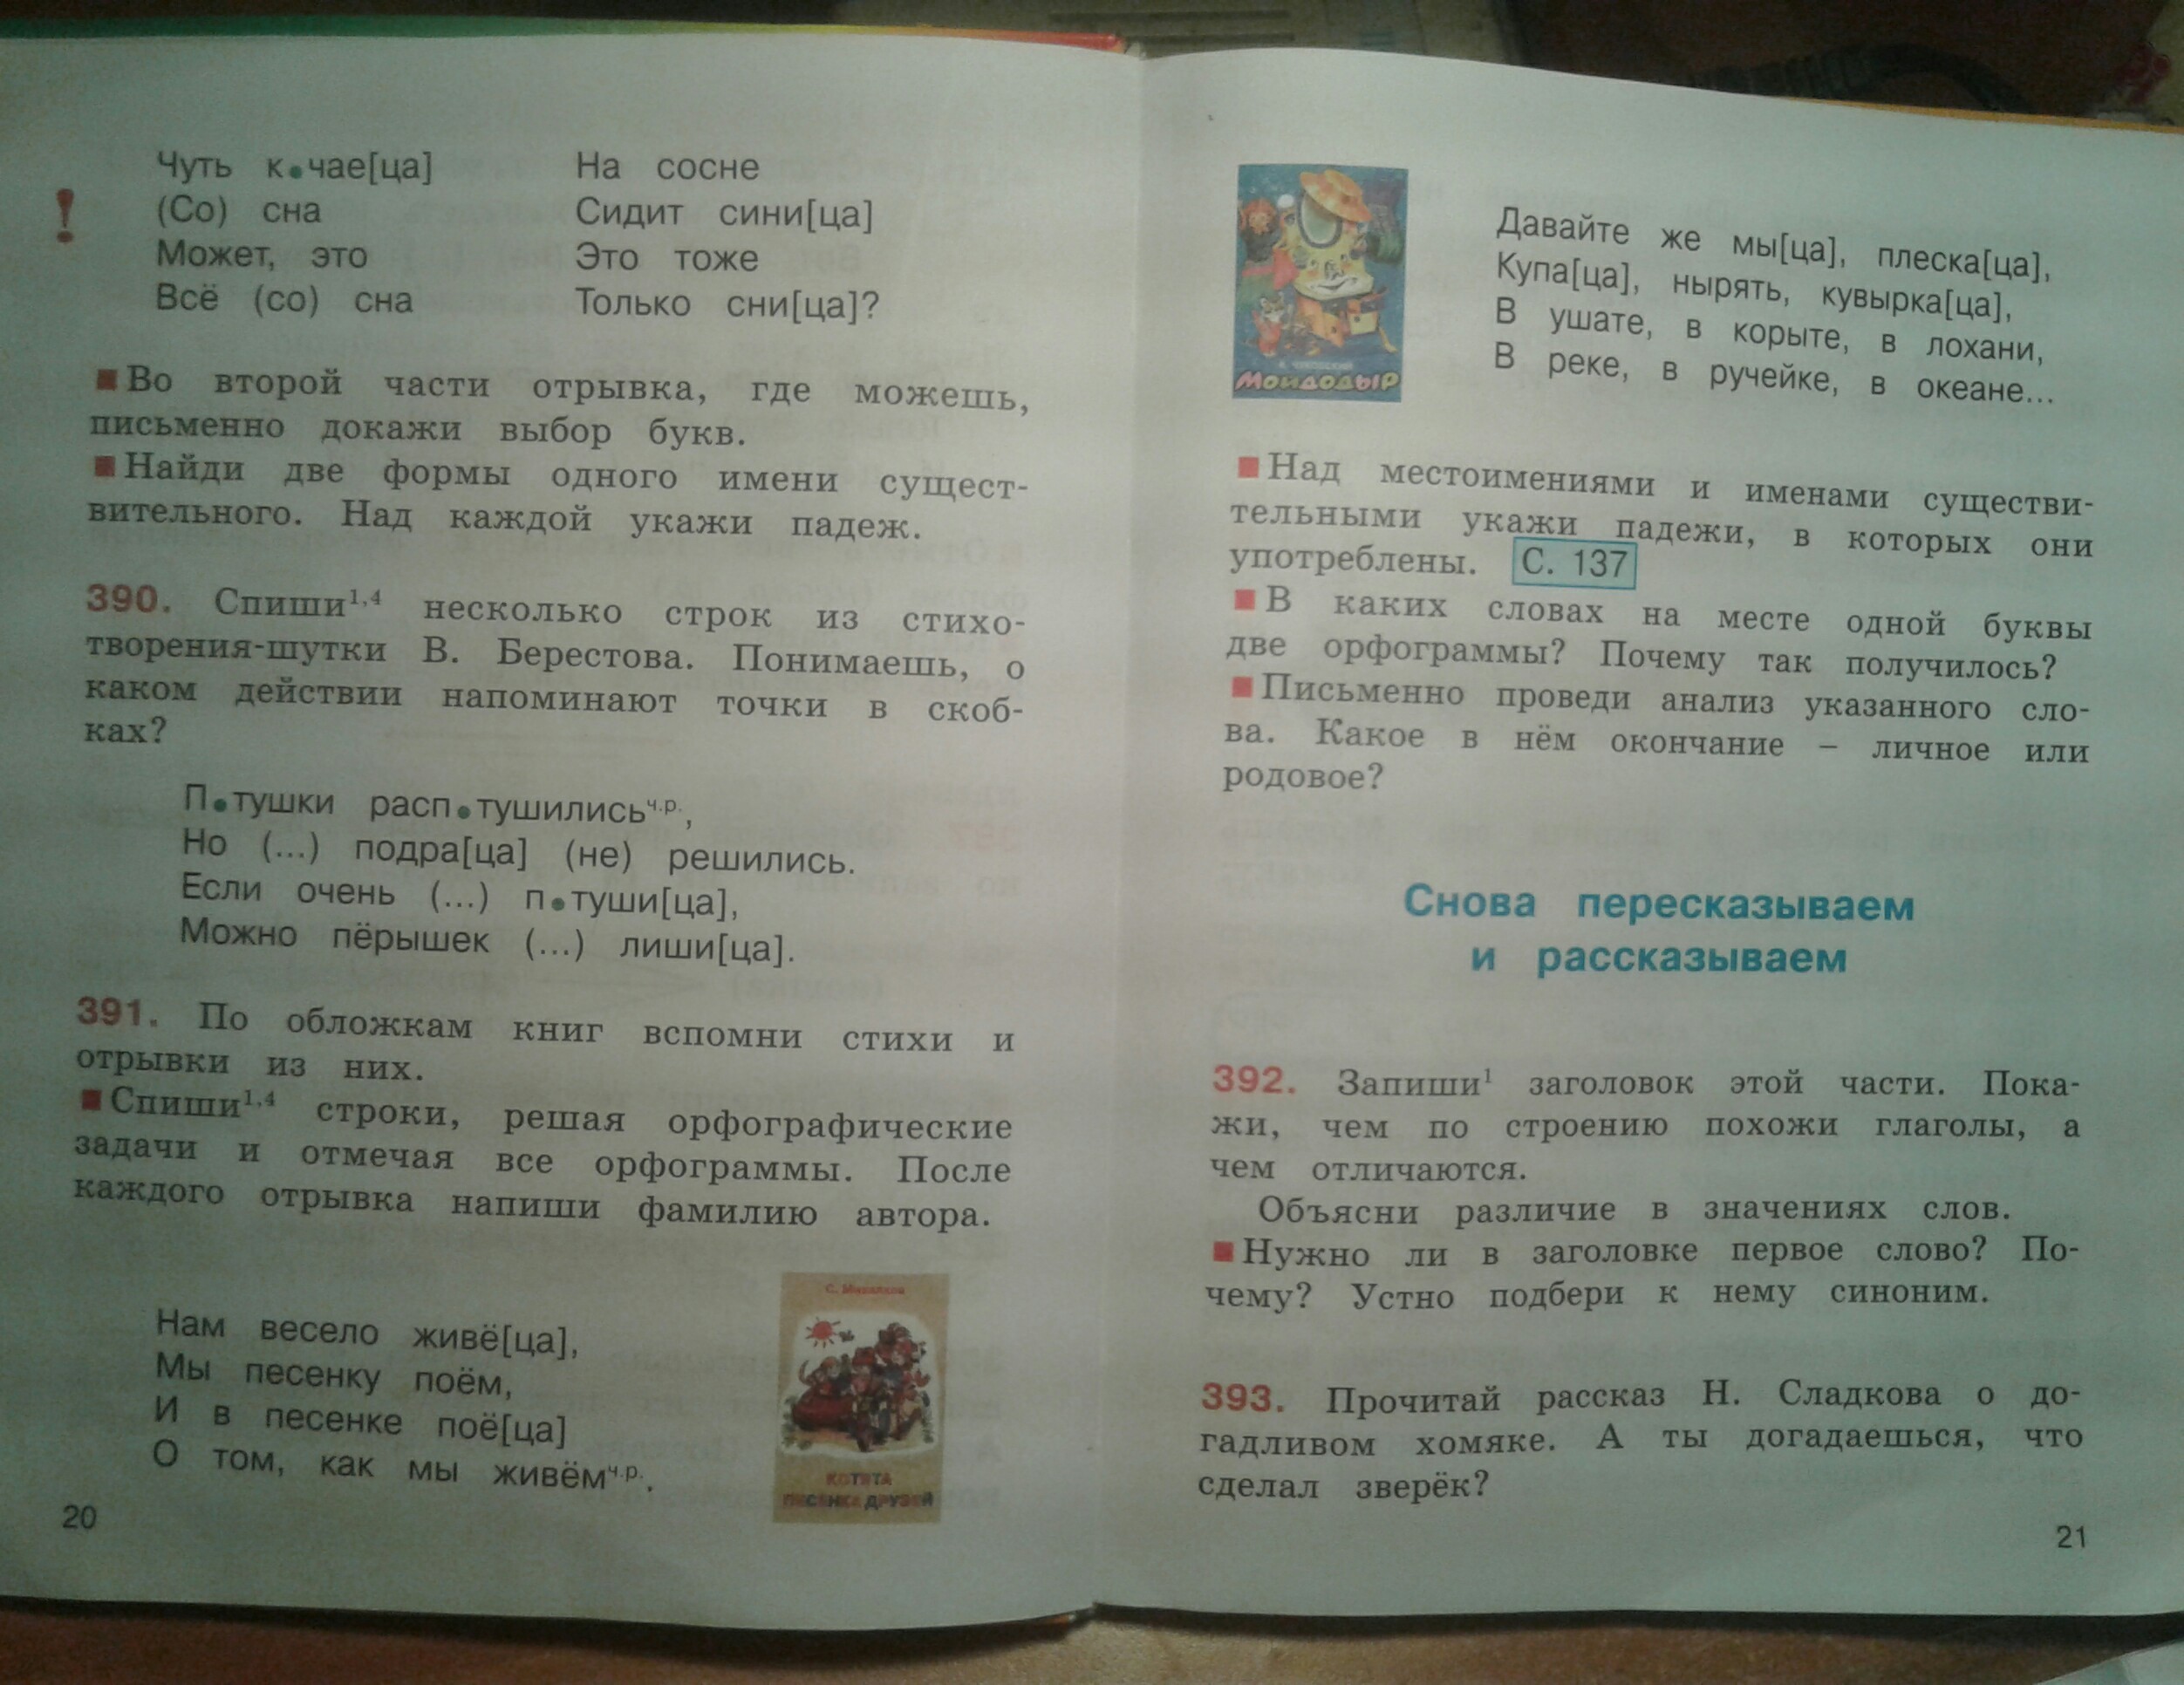 Чуть к•чае[ца]
(Со) сна
Может, это
Всё (со) сна
На сосне
Сидит сини[ца]
Это тоже
Только сни[ца]?
!
■ Во второй части отрывка, где можешь,
письменно докажи выбор букв.
■ Найди две формы одного имени сущест-
вительного. Над каждой укажи падеж.
390. Спиши1,4 несколько строк из стихо-
творения-шутки В. Берестова. Понимаешь, о
каком действии напоминают точки в скоб-
ках?
П•тушки расп•тушилисьч.р.,
Но (...) подра[ца] (не) решились.
Если очень (...) п•туши[ца],
Можно пёрышек (...) лиши[ца].
391. По обложкам книг вспомни стихи и
отрывки из них.
■ Спиши1,4 строки, решая орфографические
задачи и отмечая все орфограммы. После
каждого отрывка напиши фамилию автора.
Нам весело живё[ца],
Мы песенку поём,
И в песенке поё[ца]
О том, как мы живёмч.р..
С. Михалков
КОТЯТА
ПЕСЕНКА ДРУЗЕЙ
20
К. ЧУКОВСКИЙ
МОЙДОДЫР
Давайте же мы[ца], плеска[ца],
Купа[ца], нырять, кувырка[ца],
В ушате, в корыте, в лохани,
В реке, в ручейке, в океане...
■ Над местоимениями и именами существи-
тельными укажи падежи, в которых они
употреблены. С. 137
■ В каких словах на месте одной буквы
две орфограммы? Почему так получилось?
■ Письменно проведи анализ указанного сло-
ва. Какое в нём окончание – личное или
родовое?
Снова пересказываем
и рассказываем
392. Запиши1 заголовок этой части. Пока-
жи, чем по строению похожи глаголы, а
чем отличаются.
Объясни различие в значениях слов.
■ Нужно ли в заголовке первое слово? По-
чему? Устно подбери к нему синоним.
393. Прочитай рассказ Н. Сладкова о до-
гадливом хомяке. А ты догадаешься, что
сделал зверёк?
21